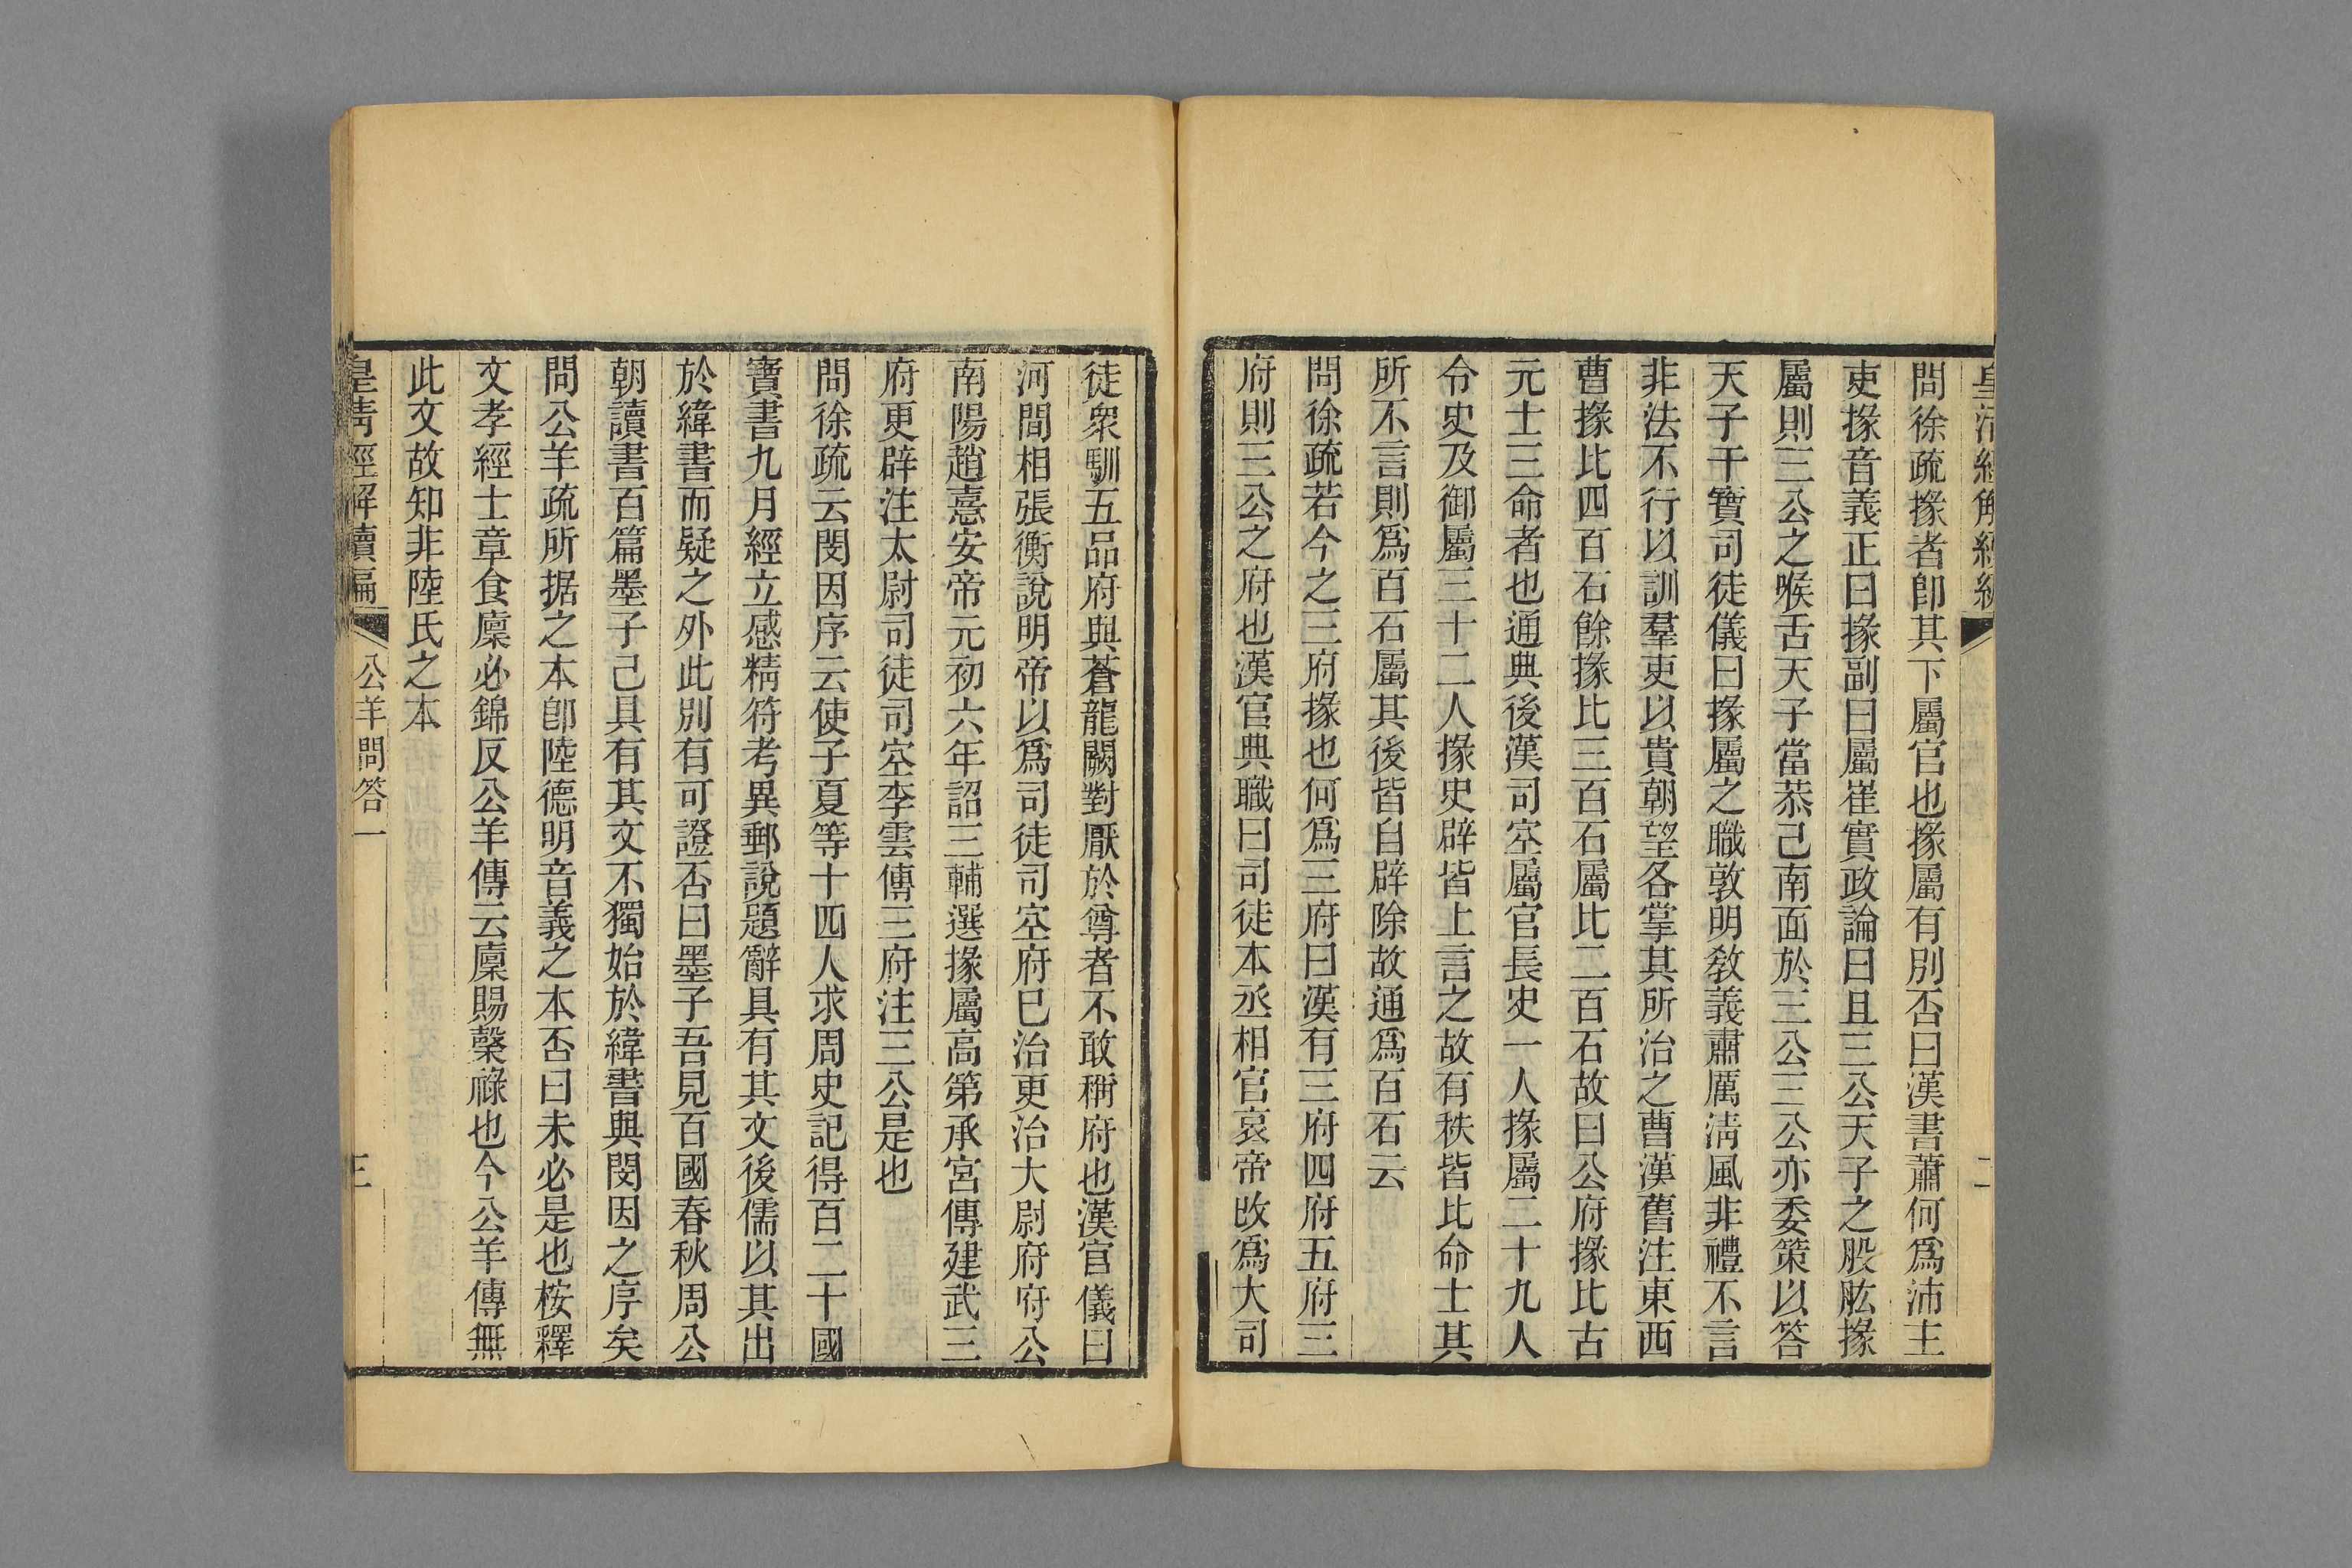 問徐疏掾者卽其下屬官也掾屬有別否曰漢書蕭何爲沛主
吏掾音義正曰掾副曰屬崔實政論曰且三公天子之股肱掾
屬則三公之喉舌天子當恭己南面於三公三公亦委策以答
天子干寶司徒儀曰掾屬之職敦明敎義肅厲淸風非禮不言
非法不行以訓羣吏以貴朝望各掌其所治之曹漢舊注東西
曹掾比四百石餘掾比三百石屬比二百石故曰公府掾比古
元士三命者也通典後漢司空屬官長史一人掾屬二十九人
令史及御屬三十二人掾史辟皆上言之故有秩皆比命士其
所不言則爲百石屬其後皆自辟除故通爲百石云
問徐疏若今之三府掾也何爲三府曰漢有三府四府五府三
府則三公之府也漢官典職曰司徒本丞相官哀帝改爲大司
徒衆馴五品府與蒼龍闕對厭於尊者不敢稱府也漢官儀曰
河間相張衡說明帝以爲司徒司空府已治更治大尉府府公
南陽趙憙安帝元初六年詔三輔選掾屬高第承宮傳建武三
府更辟注太尉司徒司空李雲傳三府注三公是也
問徐疏云閔因序云使子夏等十四人求周史記得百二十國
寶書九月經立感精符考異郵說題辭具有其文後儒以其出
於緯書而疑之外此別有可證否曰墨子吾見百國春秋周公
朝讀書百篇墨子己具有其文不獨始於緯書與閔因之序矣
問公羊疏所据之本卽陸德明音義之本否曰未必是也桉釋
文孝經士章食廩必錦反公羊傳云廩賜穀祿也今公羊傳無
此文故知非陸氏之本
皇淸經解續編 公羊問答一 三